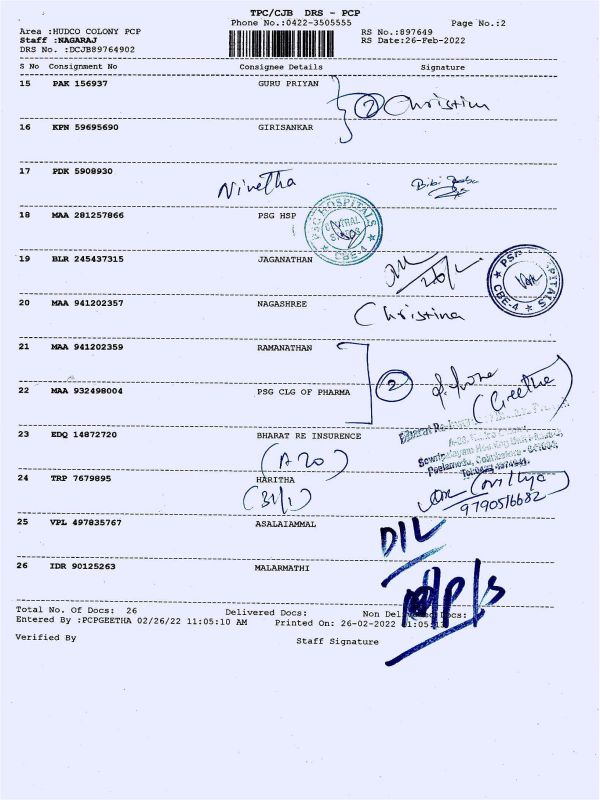 TPC/CJB DRS - PCP
Phone No.:0422-3505555 Page No.:2
Area :HUDCO COLONY PCP RS No.:897649
Staff :NAGARAJ RS Date:26-Feb-2022
DRS No. :DCJB89764902
S No Consignment No Consignee Details Signature
15 PAK 156937 GURU PRIYAN
2 Christina
16 KPN 59695690 GIRISANKAR
17 PDK 5908930
Nivetha Bibi
18 MAA 281257866 PSG HSP
PSG HOSPITALS CENTRAL CBE-4
19 BLR 245437315 JAGANATHAN
HOSPITALS CBE-4
20 MAA 941202357 NAGASHREE
Christina
21 MAA 941202359 RAMANATHAN
2
22 MAA 932498004 PSG CLG OF PHARMA
(Geetha)
23 EDQ 14872720 BHARAT RE INSURENCE
(A20)
Peelamedu, Coimbatore - 641004,
24 TRP 7679895 HARITHA
(B1/1)
9790516682
25 VPL 497835767 ASALAIAMMAL
D/L
26 IDR 90125263 MALARMATHI
Total No. Of Docs: 26 Delivered Docs: Non Delivered Docs:
Entered By :PCPGEETHA 02/26/22 11:05:10 AM Printed On: 26-02-2022
Verified By Staff Signature